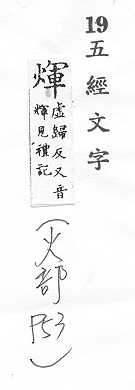 19
五經文字
煇
虛歸反又音
輝見禮記
（火部
P53）